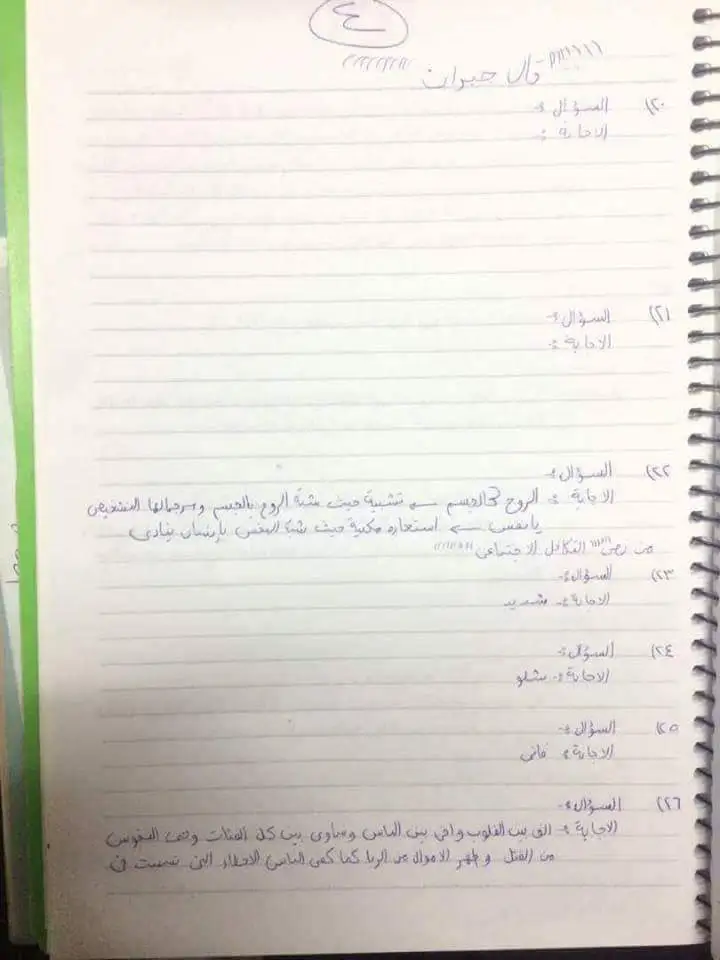 ٤
قال جبران
٢٠) السؤال :-
الاجابة :-
٢١) السؤال :-
الاجابة :-
٢٢) السؤال :-
الاجابة :- الروح كالجسم ← تشبية حيث شبة الروح بالجسم وسرجمالها التشخيص
يانفس ← استعاره مكنية حيث شبة النفس بإنسان ينادى
من نص التكافل الاجتماعى
٢٣) السؤال :-
الاجابة :- شديد
٢٤) السؤال :-
الاجابة :- شلو
٢٥) السؤال :-
الاجابة :- فانى
٢٦) السؤال :-
الاجابة :- الف بين القلوب واخى بين الناس وساوى بين كل الفئات وحمى النفوس
من القتل وطهر الاموال من الربا كما كفى الناس الاخطار التى تسببت فى